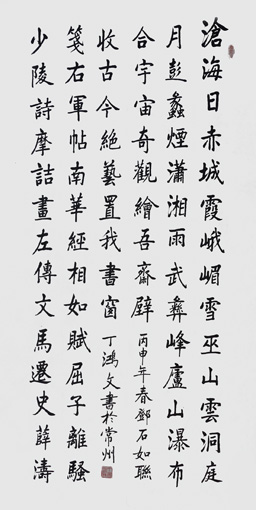 滄海日赤城霞峨嵋雪巫山雲洞庭
月彭蠡煙瀟湘雨武彝峰廬山瀑布
合宇宙奇觀繪吾齋壁
少陵詩摩詰畫左傳文馬遷史薛濤
箋右軍帖南華經相如賦屈子離騷
收古今絕藝置我書窗
丙申年春鄧石如聯
丁鴻文書於常州